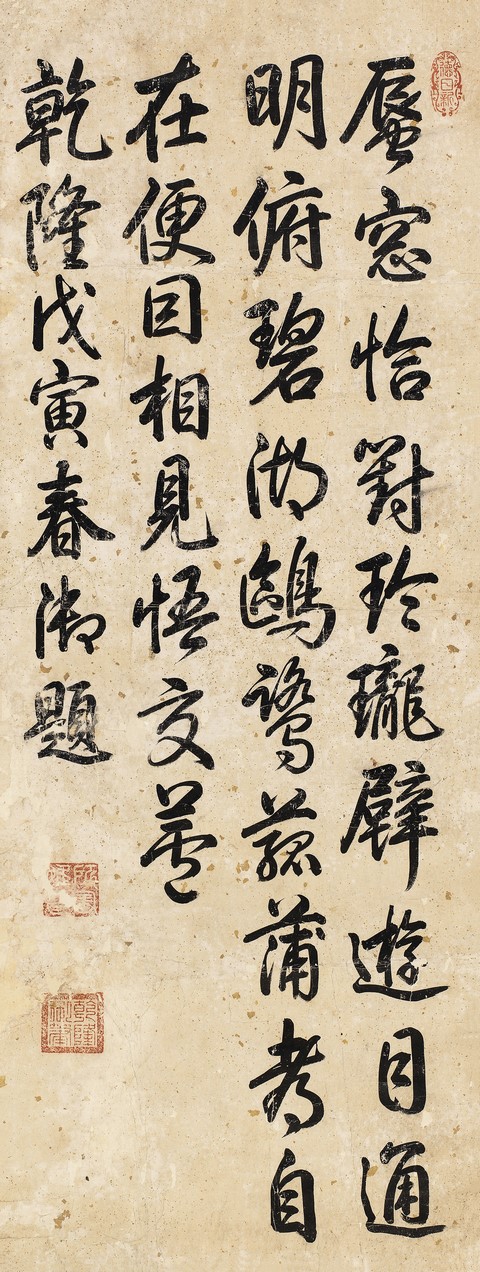 蜃窓恰對玲瓏壁遊目通
明俯碧湖鷗鷺菰蒲自
在便因相見悟交蘆
乾隆戊寅春御題